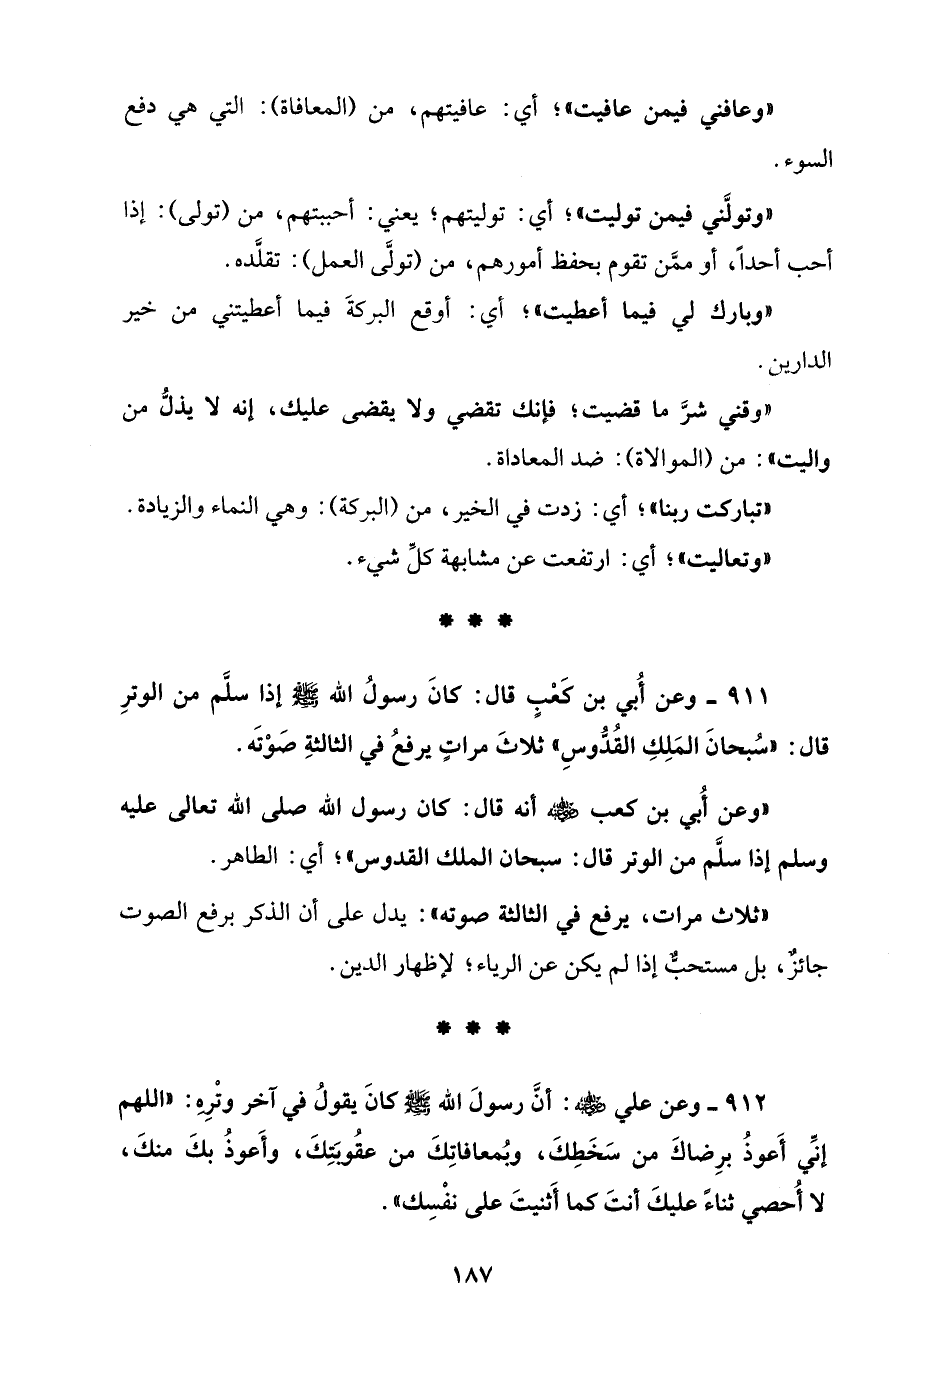 «وعافني فيمن عافيت»؛ أي: عافيتهم، من (المعافاة): التي هي دفع
السوء.
«وتولَّني فيمن توليت»؛ أي: توليتهم؛ يعني: أحببتهم، من (تولى): إذا
أحب أحداً، أو ممَّن تقوم بحفظ أمورهم، من (تولَّى العمل): تقلَّده.
«وبارك لي فيما أعطيت»؛ أي: أوقع البركةَ فيما أعطيتني من خير
الدارين.
«وقني شرَّ ما قضيت؛ فإنك تقضي ولا يقضى عليك، إنه لا يذلُّ من
واليت»: من (الموالاة): ضد المعاداة.
«تباركت ربنا»؛ أي: زدت في الخير، من (البركة): وهي النماء والزيادة.
«وتعاليت»؛ أي: ارتفعت عن مشابهة كلِّ شيء.
* * *
٩١١ ـ وعن أُبي بن كَعْبٍ قال: كانَ رسولُ الله ﷺ إذا سلَّم من الوترِ
قال: «سُبحانَ المَلِكِ القُدُّوسِ» ثلاثَ مراتٍ يرفعُ في الثالثةِ صَوْتَه.
«وعن أُبي بن كعب رضي الله عنه أنه قال: كان رسول الله صلى الله تعالى عليه
وسلم إذا سلَّم من الوتر قال: سبحان الملك القدوس»؛ أي: الطاهر.
«ثلاث مرات، يرفع في الثالثة صوته»: يدل على أن الذكر برفع الصوت
جائزٌ، بل مستحبٌّ إذا لم يكن عن الرياء؛ لإظهار الدين.
* * *
٩١٢ ـ وعن علي رضي الله عنه: أنَّ رسولَ الله ﷺ كانَ يقولُ في آخر وتْرِهِ: «اللهم
إنِّي أَعوذُ برِضاكَ من سَخَطِكَ، وبمُعافاتِكَ من عقُوبَتِكَ، وأَعوذُ بكَ منكَ،
لا أُحصي ثناءً عليكَ أنتَ كما أَثنيتَ على نفْسِك».
١٨٧